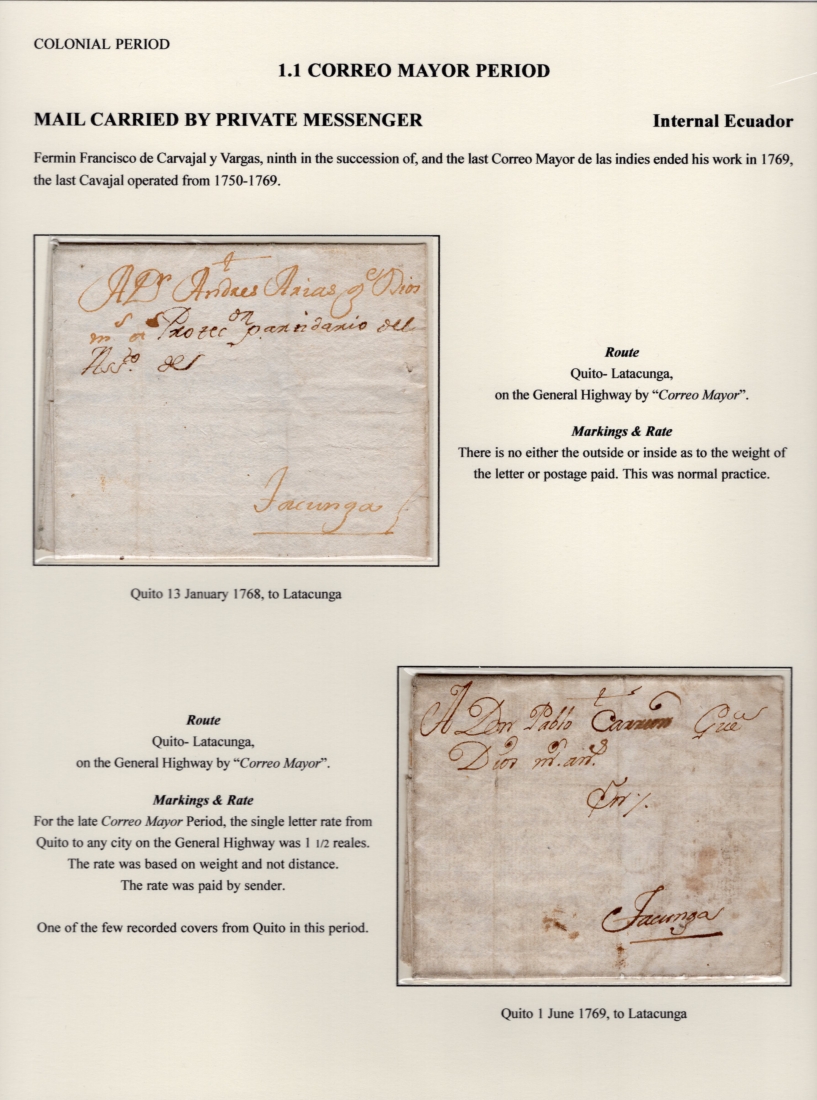 COLONIAL PERIOD
1.1 CORREO MAYOR PERIOD
MAIL CARRIED BY PRIVATE MESSENGER Internal Ecuador
Fermin Francisco de Carvajal y Vargas, ninth in the succession of, and the last Correo Mayor de las indies ended his work in 1769,
the last Cavajal operated from 1750-1769.
A Dn Andres Arias q Dios
ms as Protec or partidario del
Asso del
Tacunga
Quito 13 January 1768, to Latacunga
Route
Quito- Latacunga,
on the General Highway by “Correo Mayor”.
Markings & Rate
There is no either the outside or inside as to the weight of
the letter or postage paid. This was normal practice.
Route
Quito- Latacunga,
on the General Highway by “Correo Mayor”.
Markings & Rate
For the late Correo Mayor Period, the single letter rate from
Quito to any city on the General Highway was 1 1/2 reales.
The rate was based on weight and not distance.
The rate was paid by sender.
One of the few recorded covers from Quito in this period.
A Don Pablo Carrion Gue
Dios m. an.s
En
Tacunga
Quito 1 June 1769, to Latacunga